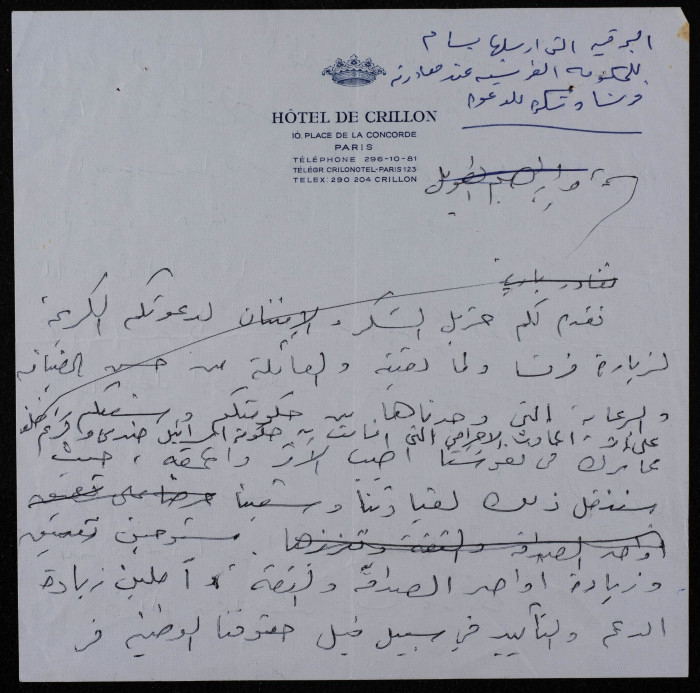 البرقيه التى ارسلها بسام
للحكومه الفرنسيه عند مغادرته
فرنسا وشكره للدعوه
HÔTEL DE CRILLON
10, PLACE DE LA CONCORDE
PARIS
TÉLÉPHONE 296-10-81
TÉLÉGR. CRILONOTEL-PARIS 123
TELEX: 290 204 CRILLON
نغادر باريس
نقدم لكم جزيل الشكر والامتنان لدعوتكم الكريمة
لزيارة فرنسا ولما لقيته والعائلة من حسن الضيافه
والرعاية التي وجدناها من حكومتكم وشعبكم
على اثر الحادث الاجرامي التي قامت به حكومة اسرائيل ضدى
مما ترك في نفوسنا اطيب الاثر واعمقه، حيث
سننقل ذلك لقيادتنا وشعبنا حرصا على تعميق
اواصر الصداقه والثقة وتعزيزها
وزيادة اواصر الصداقة والثقة آملين زيادة
الدعم والتأييد في سبيل نيل حقوقنا الوطنيه